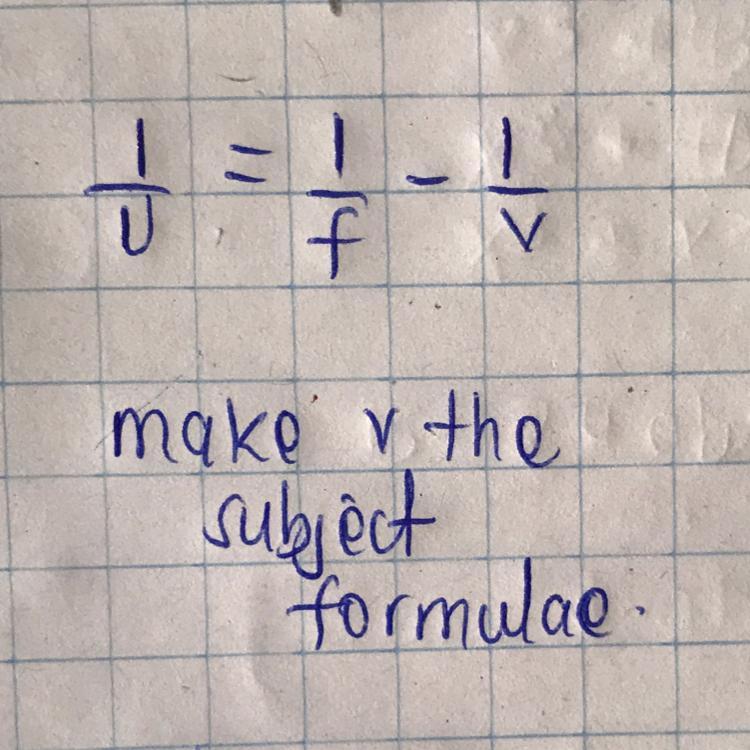 1/U = 1/f - 1/v
make v the
subject
formulae.